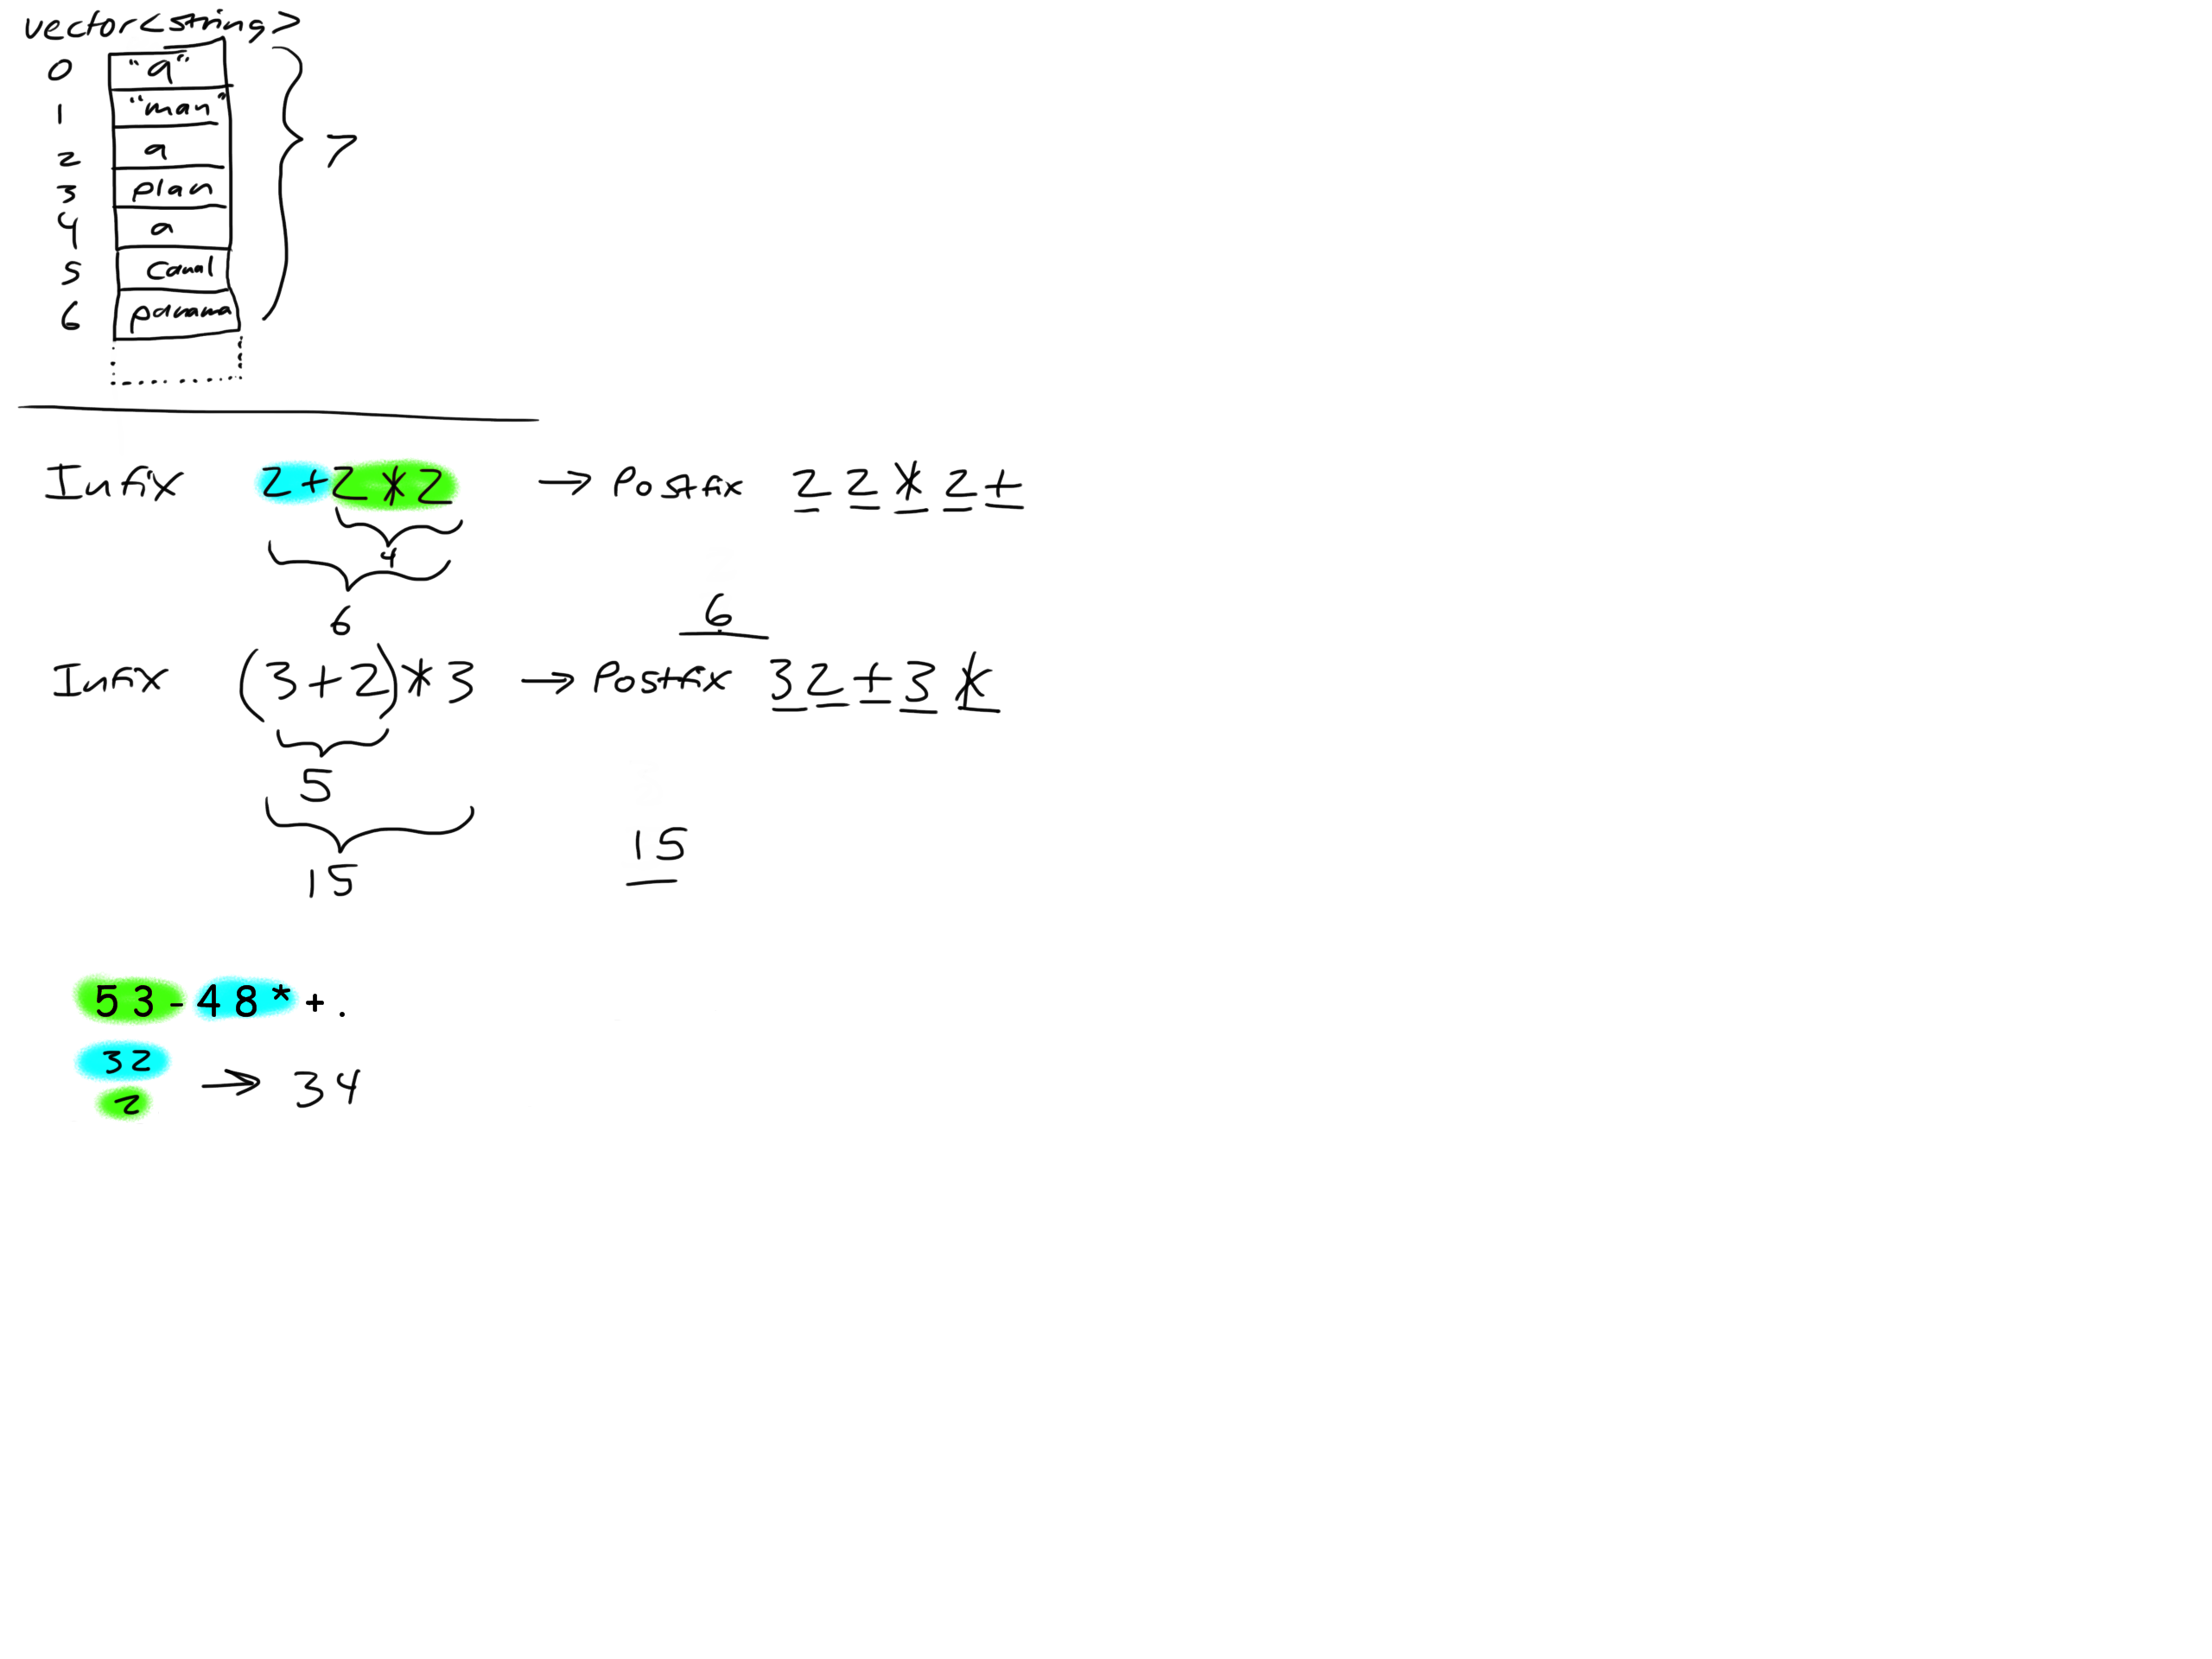 vector<string>
0 "a"
1 "man"
2 a
7
3 plan
4 a
5 canal
6 panama
Infix 2+2*2 → Postfix 2 2 * 2 +
4
6
6
Infix (3+2)*3 → Postfix 3 2 + 3 *
5
15
15
5 3 - 4 8 * + .
32
2 → 34